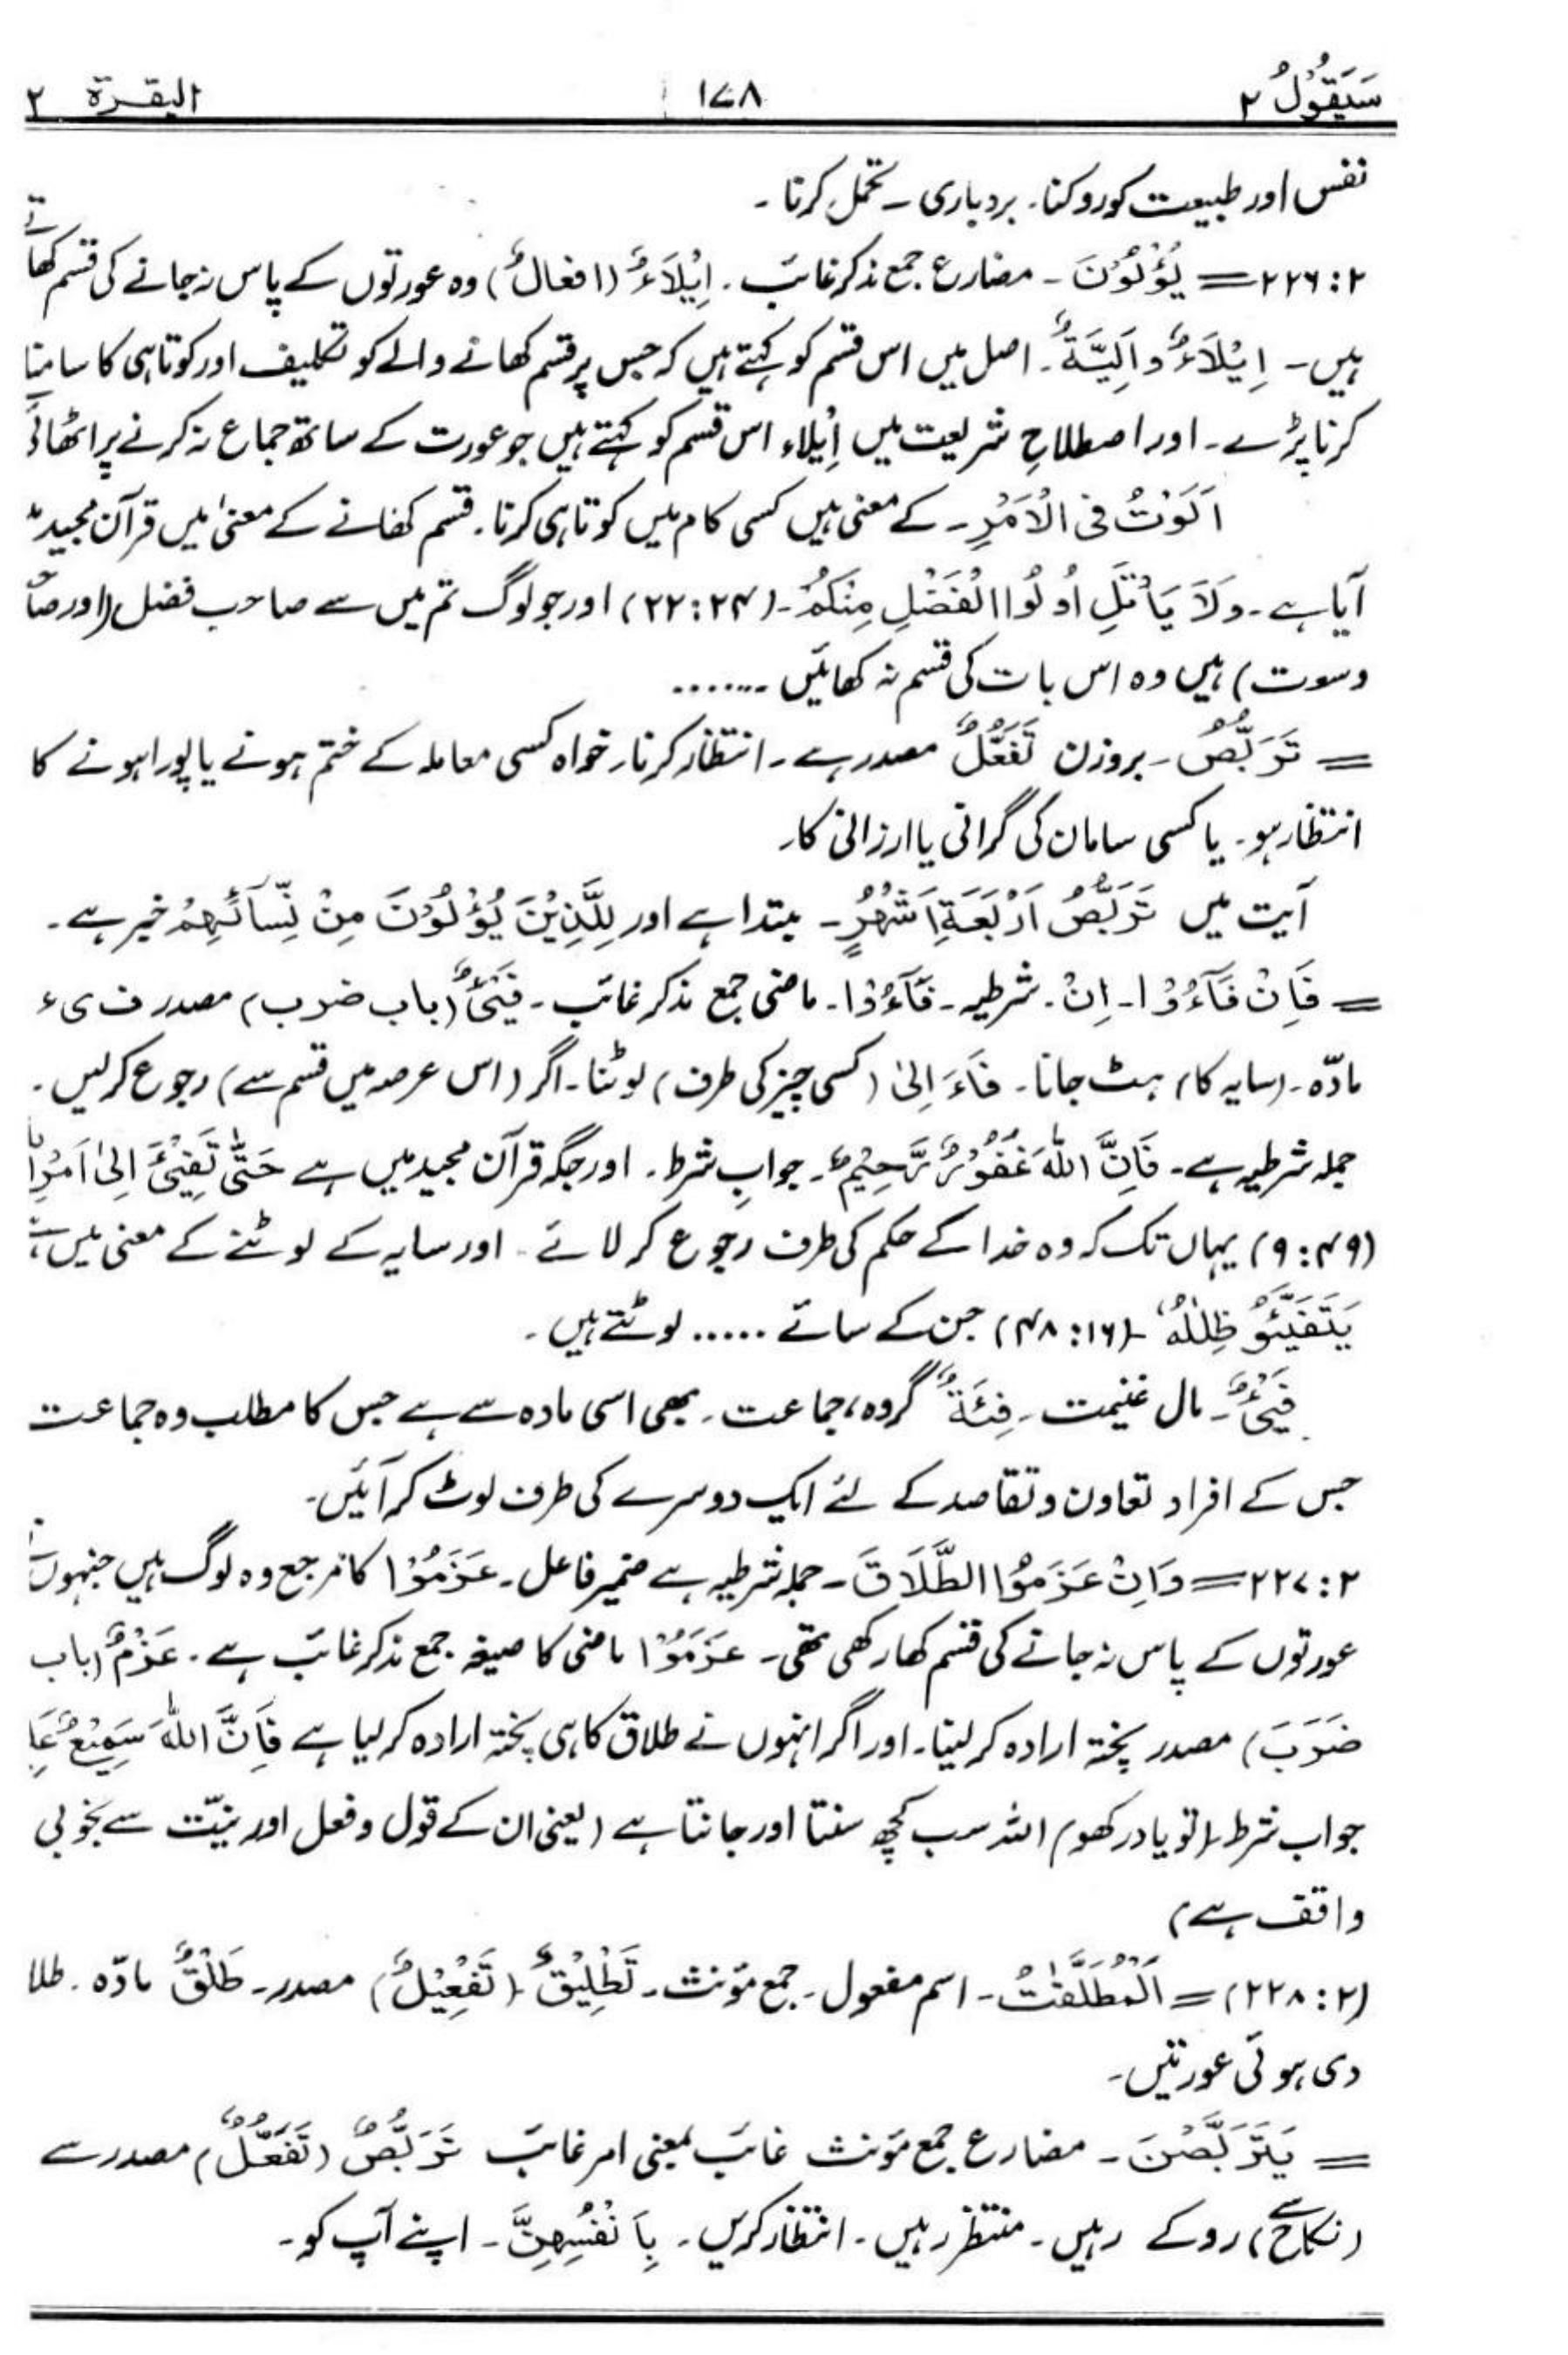 سَيَقُوْلُ ۲ ۱۷۸ البقرة ۲
نفس اور طبیعت کو روکنا۔ بردباری ۔ تحمل کرنا ۔
۲:۲۲۶ = يُؤْلُوْنَ ۔ مضارع جمع مذکر غائب ۔ اِيْلَاءٌ (افعالٌ) وہ عورتوں کے پاس نہ جانے کی قسم کھاتے
ہیں ۔ اِيْلَاءٌ و اَلِيَّةٌ ۔ اصل میں اس قسم کو کہتے ہیں کہ جس پر قسم کھانے والے کو تکلیف اور کوتاہی کا سامنا
کرنا پڑے ۔ اور اصطلاحِ شریعت میں اِیلاء اس قسم کو کہتے ہیں جو عورت کے ساتھ جماع نہ کرنے پر اٹھائی
اَلَوْتُ فی الْاَمْرِ ۔ کے معنی ہیں کسی کام میں کوتاہی کرنا ۔ قسم کھانے کے معنیٰ میں قرآن مجید
آیا ہے ۔ وَلَا يَأْتَلِ اُولُوا الْفَضْلِ مِنْكُمْ ۔ (۲۲:۲۴) اور جو لوگ تم میں سے صاحب فضل (اور
وسعت) ہیں وہ اس بات کی قسم نہ کھائیں .......
= تَرَبُّصُ ۔ بروزن تَفَعُّلٌ مصدر ہے ۔ انتظار کرنا ۔ خواہ کسی معاملہ کے ختم ہونے یا پورا ہونے کا
انتظار ہو ۔ یا کسی سامان کی گرانی یا ارزانی کا ۔
آیت میں تَرَبُّصُ اَرْبَعَةِ اَشْهُرٍ ۔ مبتدا ہے اور لِلَّذِيْنَ يُؤْلُوْنَ مِنْ نِّسَآئِهِمْ خبر ہے ۔
= فَاِنْ فَآءُوْا ۔ اِنْ ۔ شرطیہ ۔ فَآءُوْا ۔ ماضی جمع مذکر غائب ۔ فَيْئٌ (باب ضرب) مصدر ف ی ء
مادّہ ۔ (سایہ کا) ہٹ جانا ۔ فَاءَ اِلیٰ (کسی چیز کی طرف) لوٹنا ۔ اگر (اس عرصہ میں قسم سے) رجوع کرلیں ۔
جملہ شرطیہ ہے ۔ فَاِنَّ اللّٰهَ غَفُوْرٌ رَّحِيْمٌ ۔ جوابِ شرط ۔ اور جگہ قرآن مجید میں ہے حَتّٰى تَفِيْئَ اِلىٰ اَمْرِ
(۹:۴۹) یہاں تک کہ وہ خدا کے حکم کی طرف رجوع کر لائے ۔ اور سایہ کے لوٹنے کے معنی میں
يَتَفَيَّئُوْ ظِلٰلُهٗ ۔ (۴۸:۱۶) جن کے سائے ..... لوٹتے ہیں ۔
فَيْئٌ ۔ مال غنیمت ۔ فِئَةٌ گروہ، جماعت ۔ بھی اسی مادہ سے ہے جس کا مطلب وہ جماعت
جس کے افراد تعاون و تقاصد کے لئے ایک دوسرے کی طرف لوٹ کر آئیں ۔
۲:۲۲۷ = وَاِنْ عَزَمُوا الطَّلَاقَ ۔ جملہ شرطیہ ہے ضمیر فاعل ۔ عَزَمُوْا کا مرجع وہ لوگ ہیں جنہوں نے
عورتوں کے پاس نہ جانے کی قسم کھا رکھی تھی ۔ عَزَمُوْا ماضی کا صیغہ جمع مذکر غائب ہے ۔ عَزْمٌ (باب
ضَرَبَ) مصدر پختہ ارادہ کر لینا ۔ اور اگر انہوں نے طلاق کا ہی پختہ ارادہ کر لیا ہے فَاِنَّ اللّٰهَ سَمِيْعٌ
جواب شرط (تو یاد رکھو) اللہ سب کچھ سنتا اور جانتا ہے (یعنی ان کے قول و فعل اور نیّت سے بخوبی
واقف ہے)
(۲۲۸:۲) = اَلْمُطَلَّقٰتُ ۔ اسم مفعول ۔ جمع مؤنث ۔ تَطْلِيْقٌ (تَفْعِيْلٌ) مصدر ۔ طَلْقٌ مادّہ ۔ طلا
دی ہوئی عورتیں ۔
= يَتَرَبَّصْنَ ۔ مضارع جمع مؤنث غائب بمعنی امر غائب تَرَبُّصٌ (تَفَعُّلٌ) مصدر سے
(نکاح سے) روکے رہیں ۔ منتظر رہیں ۔ انتظار کریں ۔ بِاَنْفُسِهِنَّ ۔ اپنے آپ کو ۔